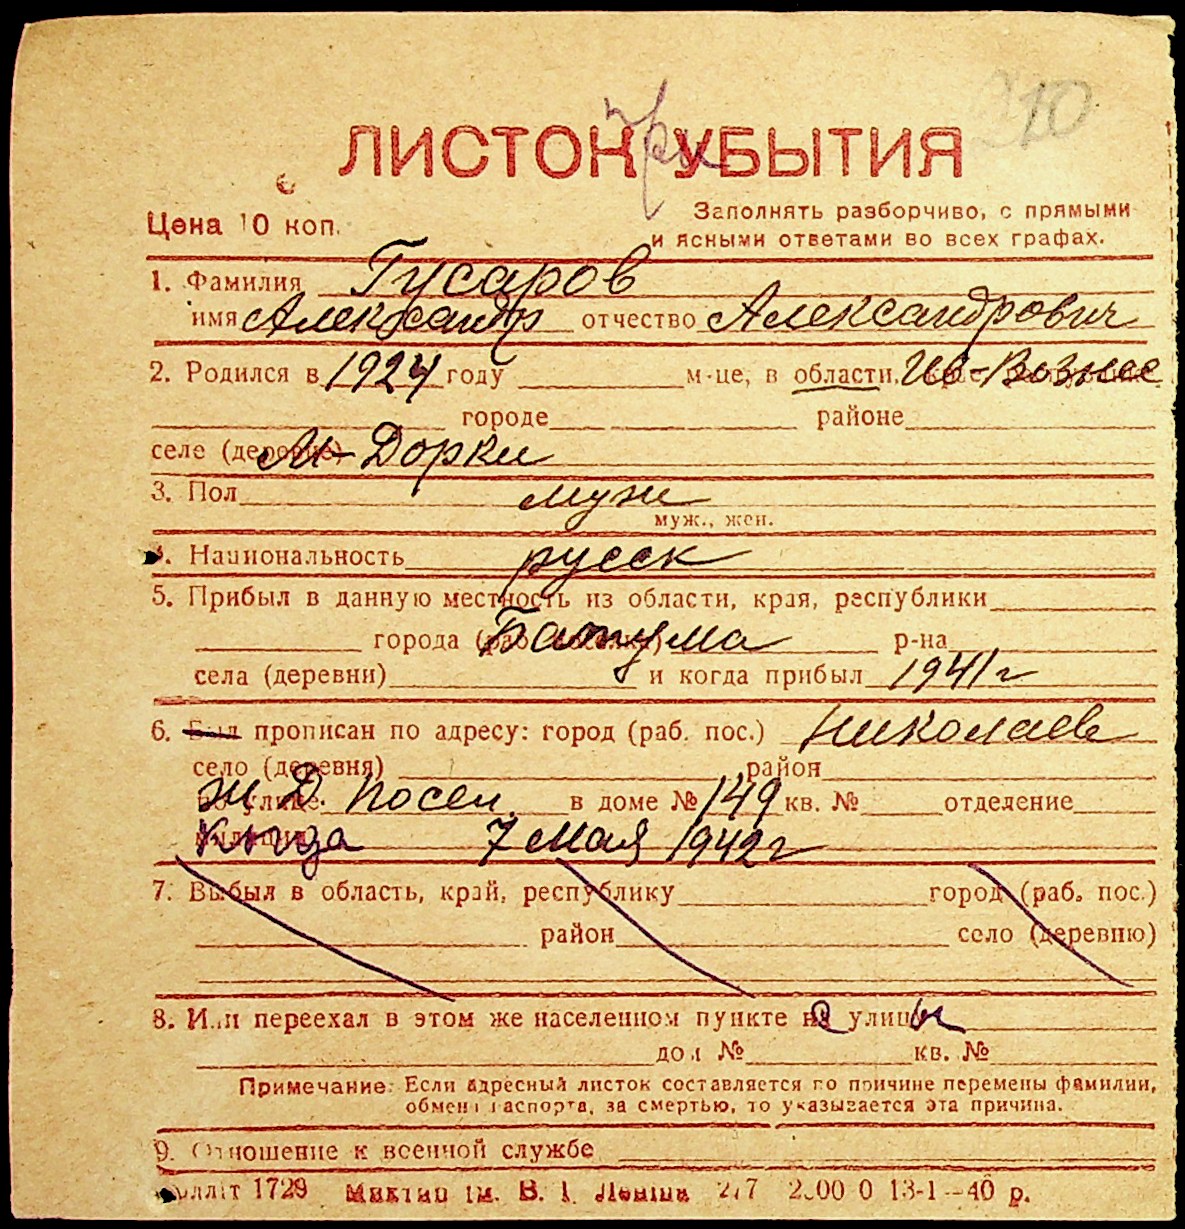 210
ЛИСТОК при УБЫТИЯ
Цена 10 коп.
Заполнять разборчиво, с прямыми
и ясными ответами во всех графах.
1. Фамилия Гусаров
имя Александр отчество Александрович
2. Родился в 1924 году м-це, в области, Ив-Вознес
городе районе
селе (деревне) М-Дорки
3. Пол муж
муж., жен.
4. Национальность русск
5. Прибыл в данную местность из области, края, республики
города (раб. поселка) Батума р-на
села (деревни) и когда прибыл 1941 г
6. Был прописан по адресу: город (раб. пос.) Николаев
село (деревня) район
по улице Ж Д посел в доме № 149 кв. № отделение
милиции Когда 7 мая 1942 г
7. Выбыл в область, край, республику город (раб. пос.)
район село (деревню)
8. Или переехал в этом же населенном пункте на улицы
дом № кв. №
Примечание: Если адресный листок составляется по причине перемены фамилии,
обмена паспорта, за смертью, то указывается эта причина.
9. Отношение к военной службе
1729 им. В. І. Леніна 13-1-40 р.